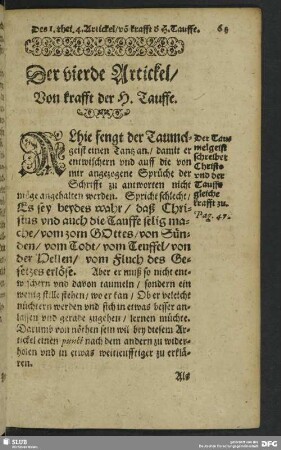 Des 1. thei. 4. Artickel/ võ krafft d H. Tauffe. 68
Der vierde Artickel/
Von krafft der H. Tauffe.
ALhie fengt der Taumel-
geist einen Tantz an/ damit er
entwischern vnd auff die von
mir angezogene Sprüche der
Schrifft zu antworten nicht
möge angehalten werden. Spricht schlecht/
Es sey beydes wahr/ daß Chri-
stus vnd auch die Tauffe selig ma-
che/ vom zorn GOttes/ von Sün-
den/ vom Todt/ vom Teuffel/ von
der Hellen/ vom Fluch des Ge-
setzes erlöse. Aber er muß so nicht ent-
wischern vnd davon taumeln/ sondern ein
wenig stille stehen/ wo er kan/ Ob er veleicht
nüchtern werden vnd sich in etwas besser an-
lassen vnd gerade zugehen/ lernen müchte.
Darumb von nöthen sein wil bey diesem Ar-
tickel einen punct nach dem andern zu wider-
holen vnd in etwas weitleufftiger zu erklä-
ren.
Als
Der Tau-
melgeist
schreibet
Christo
vnd der
Tauffe
gleiche
krafft zu.
Pag. 47.
SLUB
DFG